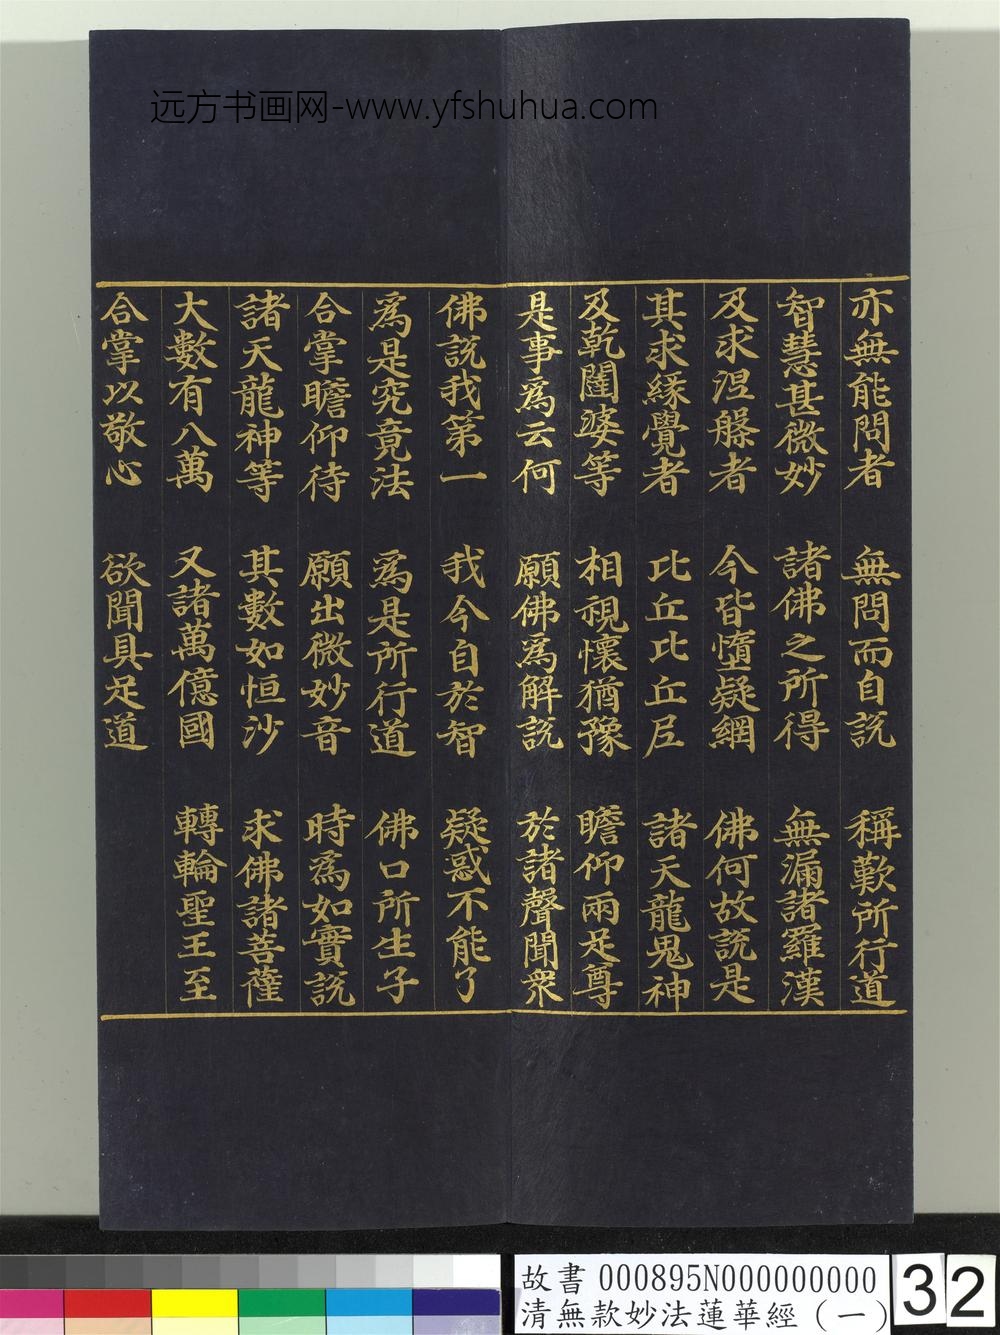 远方书画网-www.yfshuhua.com
亦無能問者 無問而自説 稱歎所行道
智慧甚微妙 諸佛之所得 無漏諸羅漢
及求涅槃者 今皆墮疑網 佛何故説是
其求緣覺者 比丘比丘尼 諸天龍鬼神
及乾闥婆等 相視懷猶豫 瞻仰兩足尊
是事爲云何 願佛爲解説 於諸聲聞衆
佛説我第一 我今自於智 疑惑不能了
爲是究竟法 爲是所行道 佛口所生子
合掌瞻仰待 願出微妙音 時爲如實説
諸天龍神等 其數如恒沙 求佛諸菩薩
大數有八萬 又諸萬億國 轉輪聖王至
合掌以敬心 欲聞具足道
故書 000895N000000000
清無款妙法蓮華經（一）
32